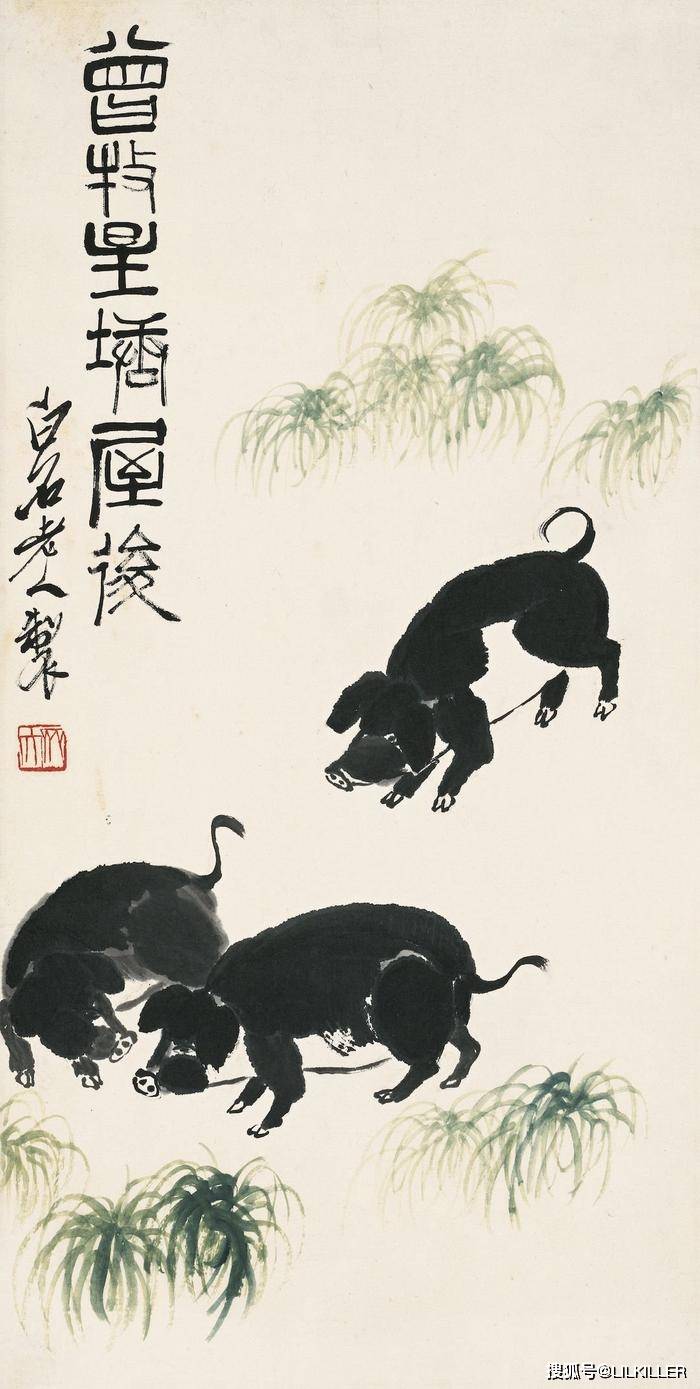 曾牧星塘屋後
白石老人製
搜狐号@LILKILLER